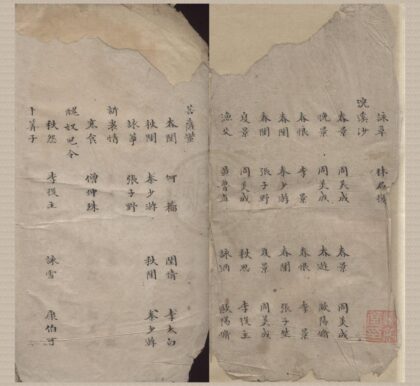 詠草 林君復
浣溪沙
春景 周美成 春景 周美成
晚景 周美成 春遊 歐陽脩
春恨 李景 春恨 李景
春閨 秦少游 春閨 張子野
春閨 張子野 夏景 周美成
夏景 周美成 秋思 李後主
漁父 黃魯直 詠酒 歐陽脩
菩薩蠻
春閨 何籀 閨情 李太白
秋閨 秦少游 秋閨 秦少游
詠箏 張子野
訴衷情
寒食 僧仲殊
醜奴兒令
秋怨 李後主 詠雪 康伯可
卜算子